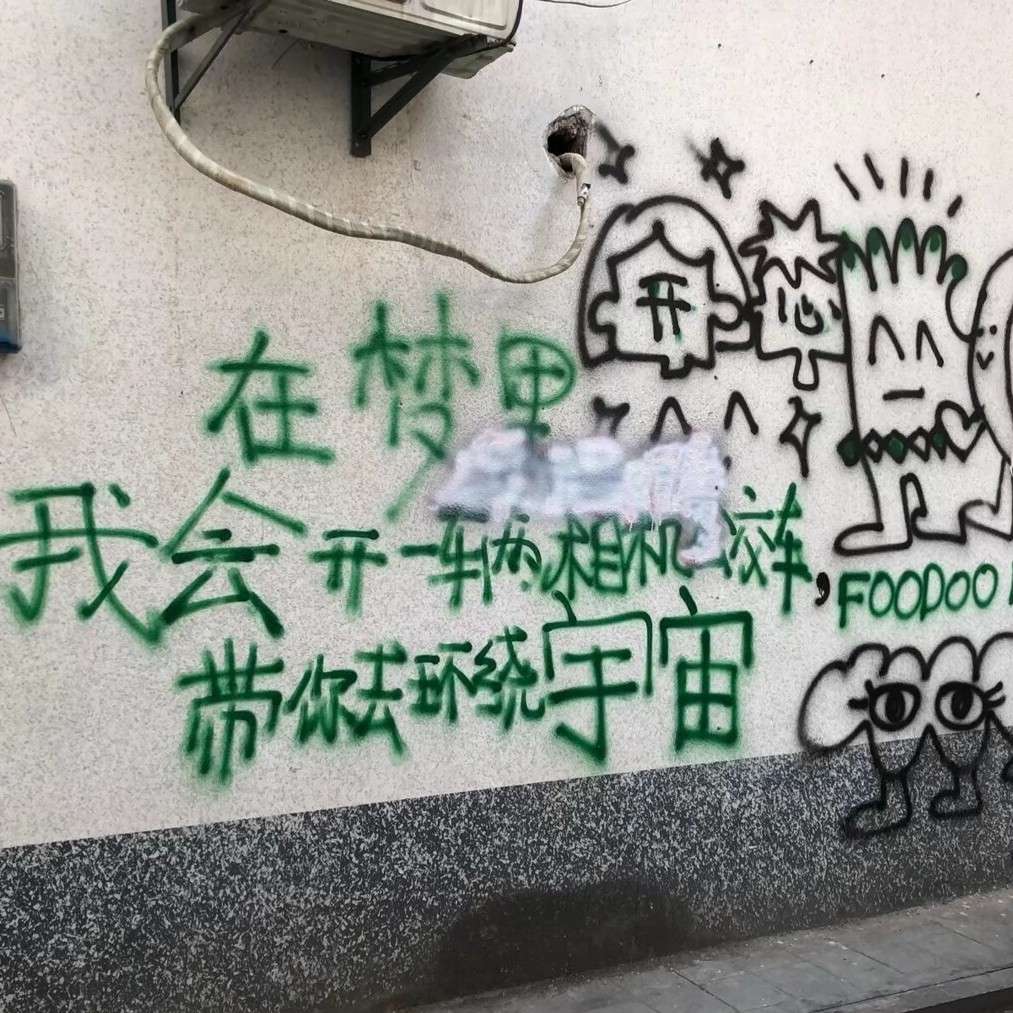 在梦里
我会开一车两相机公交车,
带你去环绕宇宙
开心
FOODOO